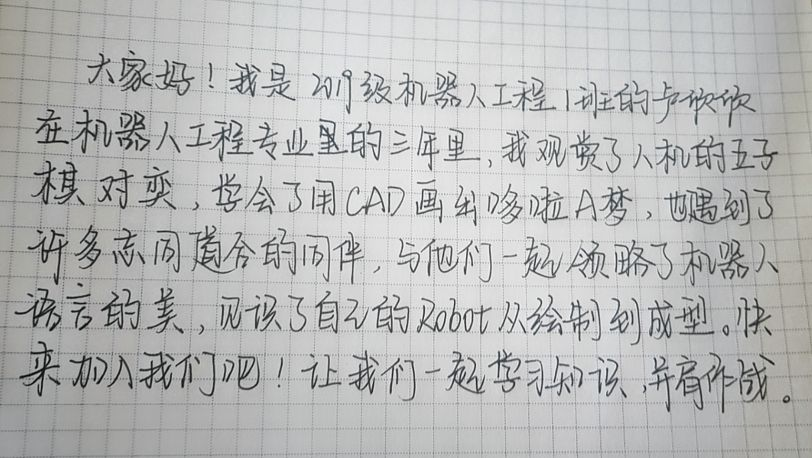 大家好！我是2019级机器人工程1班的卢欣欣
在机器人工程专业里的三年里，我观赏了人机的五子
棋对弈，学会了用CAD画出哆啦A梦，也遇到了
许多志同道合的同伴，与他们一起领略了机器人
语言的美，见识了自己的Robot从绘制到成型。快
来加入我们吧！让我们一起学习知识，并肩作战。